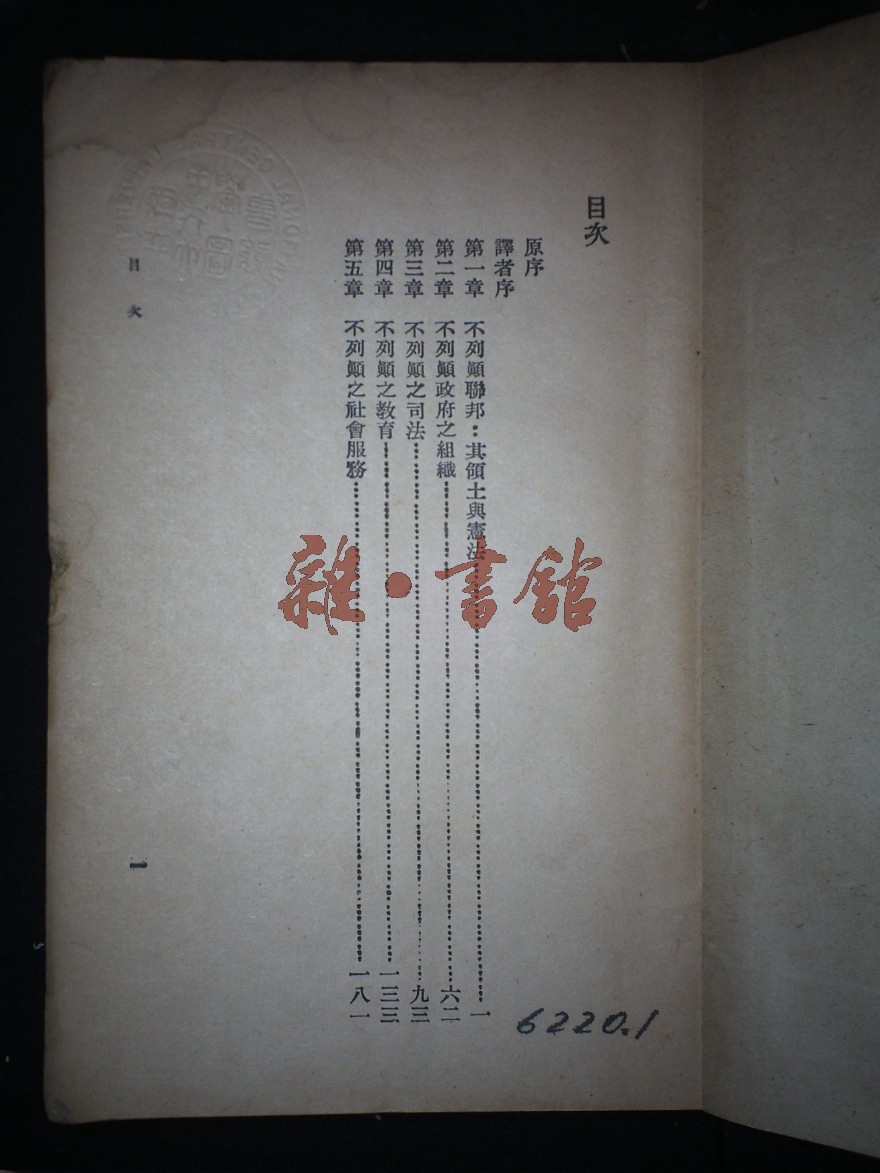 目次
原序
譯者序
第一章 不列顛聯邦：其領土與憲法……一
第二章 不列顛政府之組織……六二
第三章 不列顛之司法……九三
第四章 不列顛之教育……一三三
第五章 不列顛之社會服務……一八一
目次
一
6220.1
雜·書館